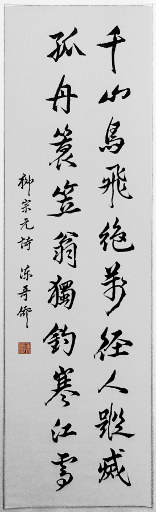 千山鳥飛絶萬径人蹤滅
孤舟蓑笠翁獨釣寒江雪
柳宗元詩